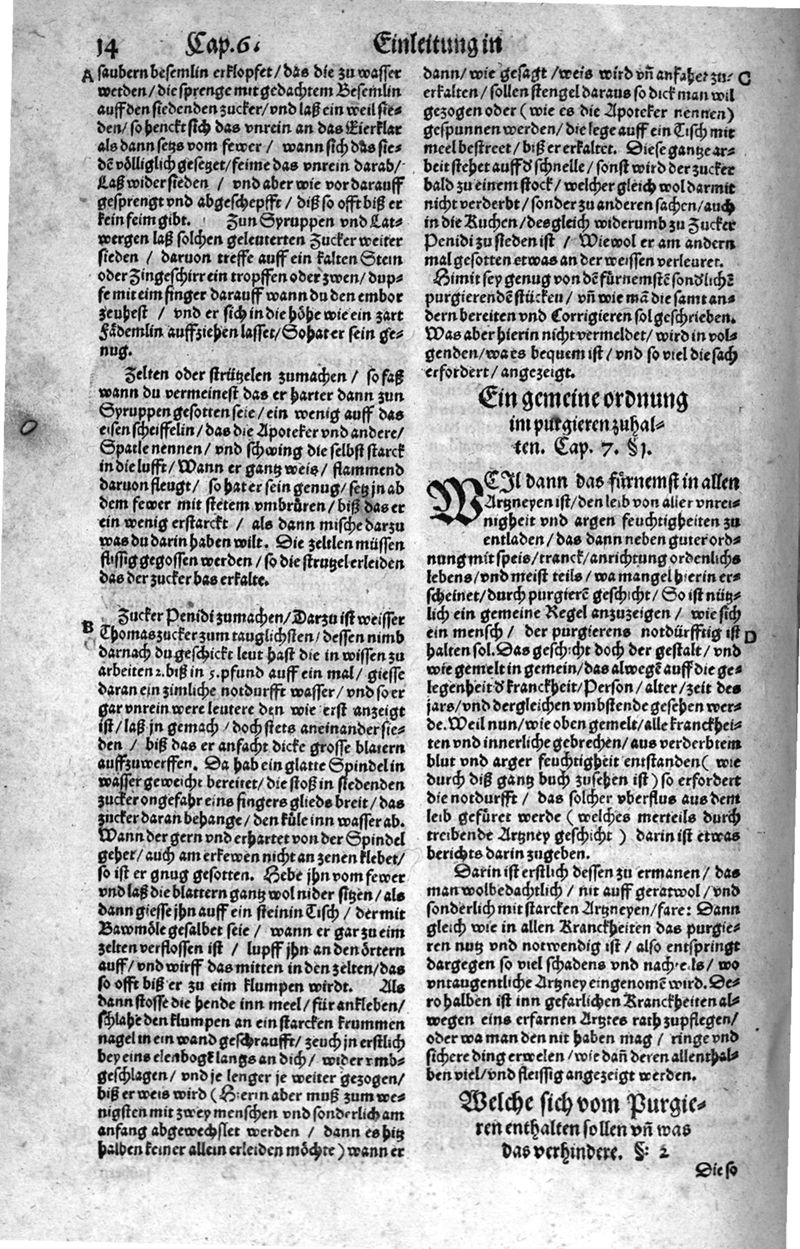 14 Cap. 6. Einleitung in
A saubern besemlin erklopfet / das die zu wasser
werden / die sprenge mit gedachtem Besemlin
auff den siedenden zucker / vnd laß ein weil sie-
den / so henckt sich das vnrein an das Eierklar
als dann setzs vom fewer / wann sich das sie-
dē völliglich gesetzet / feime das vnrein darab /
Laß wider sieden / vnd aber wie vor darauff
gesprengt vnd abgeschepfft / diß so offt biß er
kein feim gibt. Zun Syruppen vnd Lat-
wergen laß solchen geleuterten Zucker weiter
sieden / daruon treffe auff ein kalten Stein
oder Zingeschirr ein tropffen oder zwen / dup-
fe mit eim finger darauff wann du den embor
zeuhest / vnd er sich in die höhe wie ein zart
Fädemlin auffziehen lasset / So hat er sein ge-
nug.
Zelten oder strützelen zumachen / so faß
wann du vermeinest das er harter dann zun
Syruppen gesotten seie / ein wenig auff das
eisen scheiffelin / das die Apoteker vnd andere /
Spatle nennen / vnd schwing die selbst starck
in die lufft / Wann er gantz weis / flammend
daruon fleugt / so hat er sein genug / setz jn ab
dem fewer mit stetem vmbrüren / biß das er
ein wenig erstarckt / als dann mische darzu
was du darin haben wilt. Die zeltlen müssen
flissig gegossen werden / so die strutzel erleiden
das der zucker bas erkalte.
Zucker Penidi zumachen / Darzu ist weisser
B Thomaszucker zum tauglichsten / dessen nimb
darnach du geschickt leut hast die in wissen zu
arbeiten 2. biß in 5. pfund auff ein mal / giesse
daran ein zimliche notdurfft wasser / vnd so er
gar vnrein were leutere den wie erst anzeigt
ist / laß jn gemach / doch stets aneinander sie-
den / biß das er anfacht dicke grosse blatern
auffzuwerffen. Da hab ein glatte Spindel in
wasser geweicht bereitet / die stoß in siedenden
zucker ongefahr eins fingers glieds breit / das
zucker daran behange / den küle inn wasser ab.
Wann der gern vnd erhartet von der Spindel
gehet / auch am erkewen nicht an zenen klebet /
so ist er gnug gesotten. Hebe jhn vom fewer
vnd laß die blattern gantz wol nider sitzen / als
dann giesse jhn auff ein steinin Tisch / der mit
Bawmöle gesalbet seie / wann er gar zu eim
zelten verflossen ist / lupff jhn an den örtern
auff / vnd wirff das mitten in den zelten / das
so offt biß er zu eim klumpen wirdt. Als
dann stosse die hende inn meel / für ankleben /
schlahe den klumpen an ein starcken krummen
nagel in ein wand geschraufft / zeuch jn erstlich
bey eins elenbogē langs an dich / wider vmb-
geschlagen / vnd je lenger je weiter gezogen /
biß er weis wird ( Hierin aber muß zum we-
nigsten mit zwey menschen vnd sonderlich am
anfang abgewechslet werden / dann es hitz
halben keiner allein erleiden möchte ) wann er
dann / wie gesagt / weis wird vñ anfahet zu- C
erkalten / sollen stengel daraus so dick man wil
gezogen oder ( wie es die Apoteker nennen )
gespunnen werden / die lege auff ein Tisch mit
meel bestreet / biß er erkaltet. Diese gantze ar-
beit stehet auffd schnelle / sonst wird der zucker
bald zu einem stock / welcher gleich wol darmit
nicht verderbt / sonder zu anderen sachen / auch
in die Kuchen / desgleich widerumb zu Zucker
Penidi zu sieden ist / Wiewol er am andern
mal gesotten etwas an der weissen verleuret.
Himit sey genug von dē fürnemstē sondlichē
purgierendē stücken / vñ wie mā die samt an-
dern bereiten vnd Corrigieren sol geschrieben.
Was aber hierin nicht vermeldet / wird in vol-
genden / wa es bequem ist / vnd so viel die sach
erfordert / angezeigt.
Ein gemeine ordnung
im purgieren zuhal-
ten. Cap. 7. §1.
WEil dann das fürnemst in allen
Artzneyen ist / den leib von aller vnrei-
nigheit vnd argen feuchtigheiten zu
entladen / das dann neben guter ord-
nung mit speis / tranck / anrichtung ordenlichs
lebens / vnd meist teils / wa mangel hierin er-
scheinet / durch purgierē geschicht / So ist nütz-
lich ein gemeine Regel anzuzeigen / wie sich
ein mensch / der purgierens notdürfftig ist D
halten sol. Das geschicht doch der gestalt / vnd
wie gemelt in gemein / das alwegē auff die ge-
legenheit d kranckheit / Person / alter / zeit des
jars / vnd dergleichen vmbstende gesehen wer-
de. Weil nun / wie oben gemelt / alle kranckhei-
ten vnd innerliche gebrechen / aus verderbtem
blut vnd arger feuchtigheit entstanden ( wie
durch diß gantz buch zusehen ist ) so erfordert
die notdurfft / das solcher vberflus aus dem
leib gefüret werde ( welches merteils durch
treibende Artzney geschicht ) darin ist etwas
berichts darin zugeben.
Darin ist erstlich dessen zu ermanen / das
man wolbedachtlich / nit auff geratwol / vnd
sonderlich mit starcken Artzneyen / fare: Dann
gleich wie in allen Kranckheiten das purgie-
ren nutz vnd notwendig ist / also entspringt
dargegen so viel schadens vnd nachteils / wo
vntaugentliche Artzney eingenomē wird. De-
ro halben ist inn gefarlichen Kranckheiten al-
wegen eins erfarnen Artztes rath zupflegen /
oder wa man den nit haben mag / ringe vnd
sichere ding erwelen / wie dañ deren allenthal-
ben viel / vnd fleissig angezeigt werden.
Welche sich vom Purgie-
ren enthalten sollen vñ was
das verhindere. §: 2
Die so